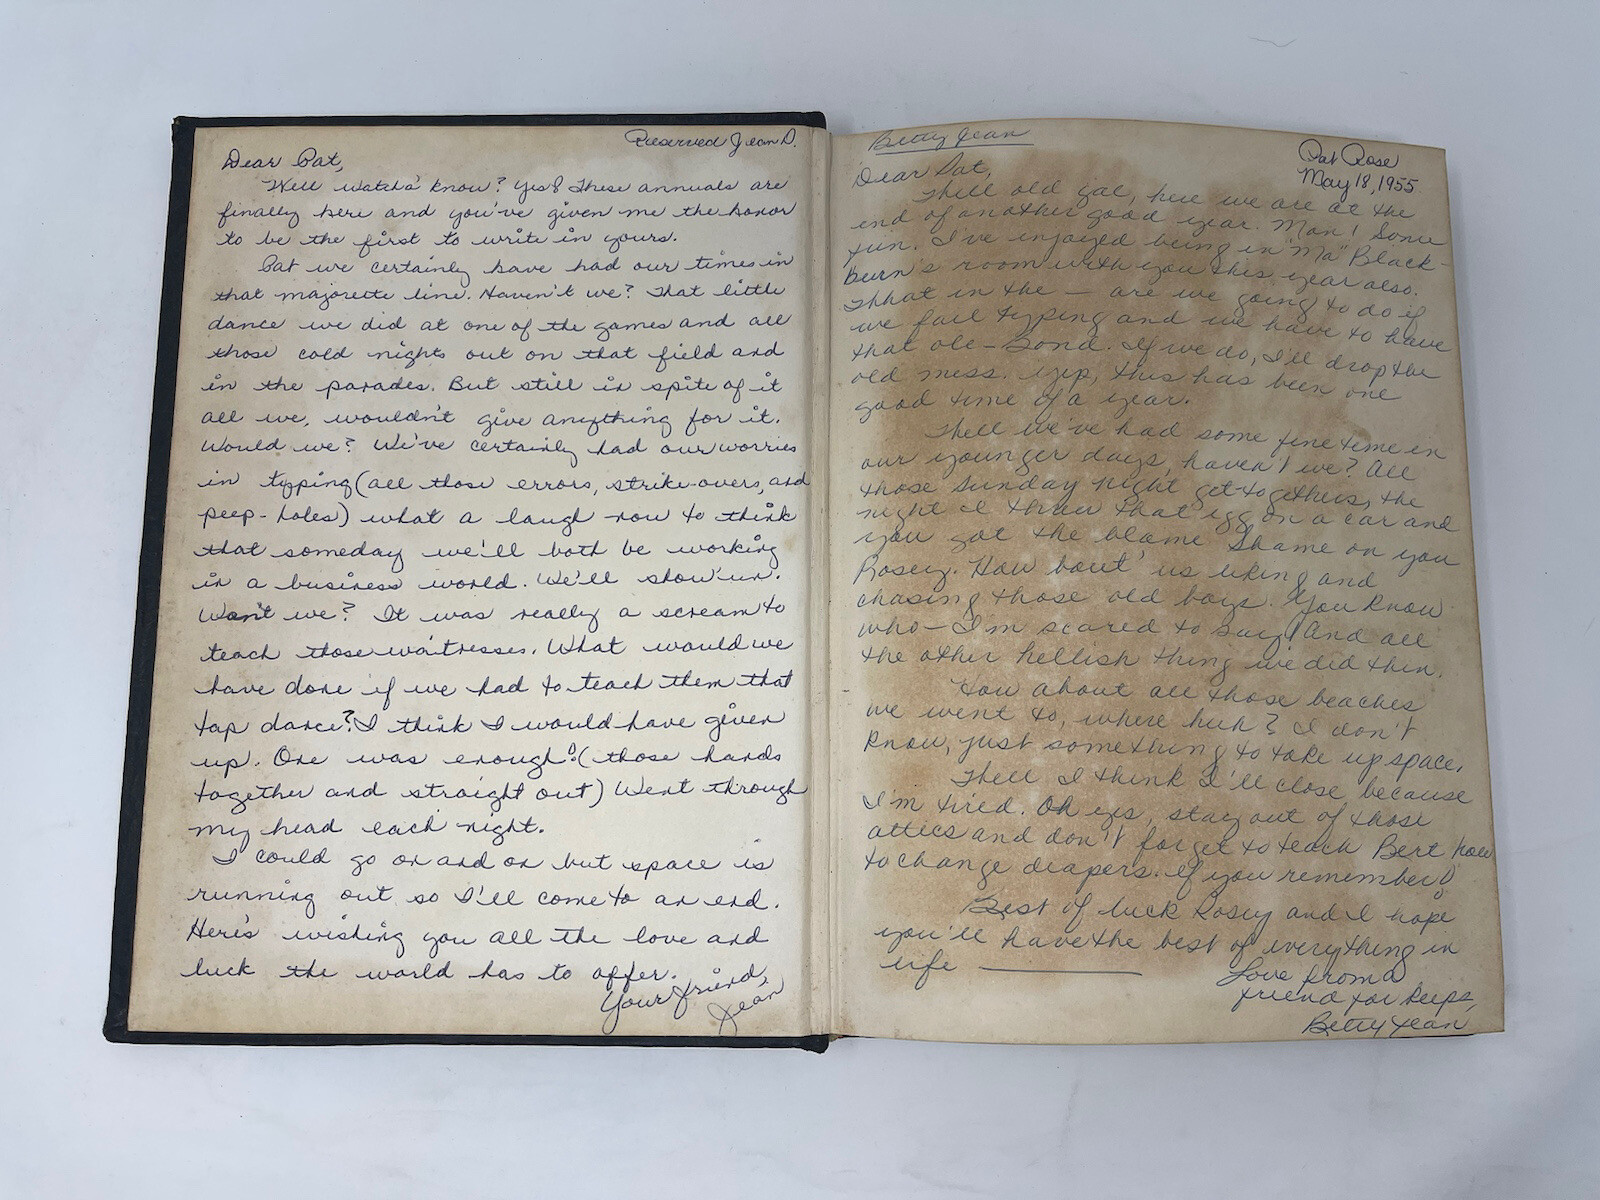 Reserved Jean D.
Dear Pat,
Well watcha' know? Yes! These annuals are
finally here and you've given me the honor
to be the first to write in yours.
Pat we certainly have had our times in
that majorette line. Haven't we? That little
dance we did at one of the games and all
those cold nights out on that field and
in the parades. But still in spite of it
all we, wouldn't give anything for it.
Would we? We've certainly had our worries
in typing (all those errors, strike-overs, and
peep-holes) what a laugh now to think
that someday we'll both be working
in a business world. We'll show'um.
Won't we? It was really a scream to
teach those waitresses. What would we
have done if we had to teach them that
tap dance? I think I would have given
up. One was enough! (those hands
together and straight out) Went through
my head each night.
I could go on and on but space is
running out so I'll come to an end.
Here's wishing you all the love and
luck the world has to offer.
Your friend,
Jean
Betty Jean
Pat Rose
May 18, 1955
Dear Pat,
Well old gal, here we are at the
end of another good year. Man! Some
fun. I've enjoyed being in "Ma" Black-
burn's room with you this year also.
What in the — are we going to do if
we fail typing and we have to have
that ole - Bond. If we do, I'll drop the
old mess. Yep, this has been one
good time of a year.
Well we've had some fine time in
our younger days, haven't we? All
those Sunday night get-togethers, the
night I threw that egg on a car and
you got the blame Shame on you
Rosey. How bout' us liking and
chasing those old boys. You know
who - I'm scared to say! And all
the other hellish thing we did then.
How about all those beaches
we went to, where huh? I don't
know, just something to take up space.
Well I think I'll close because
I'm tired. Oh yes, stay out of those
attics and don't forget to teach Bert how
to change diapers. If you remember!
Best of luck Rosey and I hope
you'll have the best of everything in
life
Love from a
friend for keeps,
Betty Jean